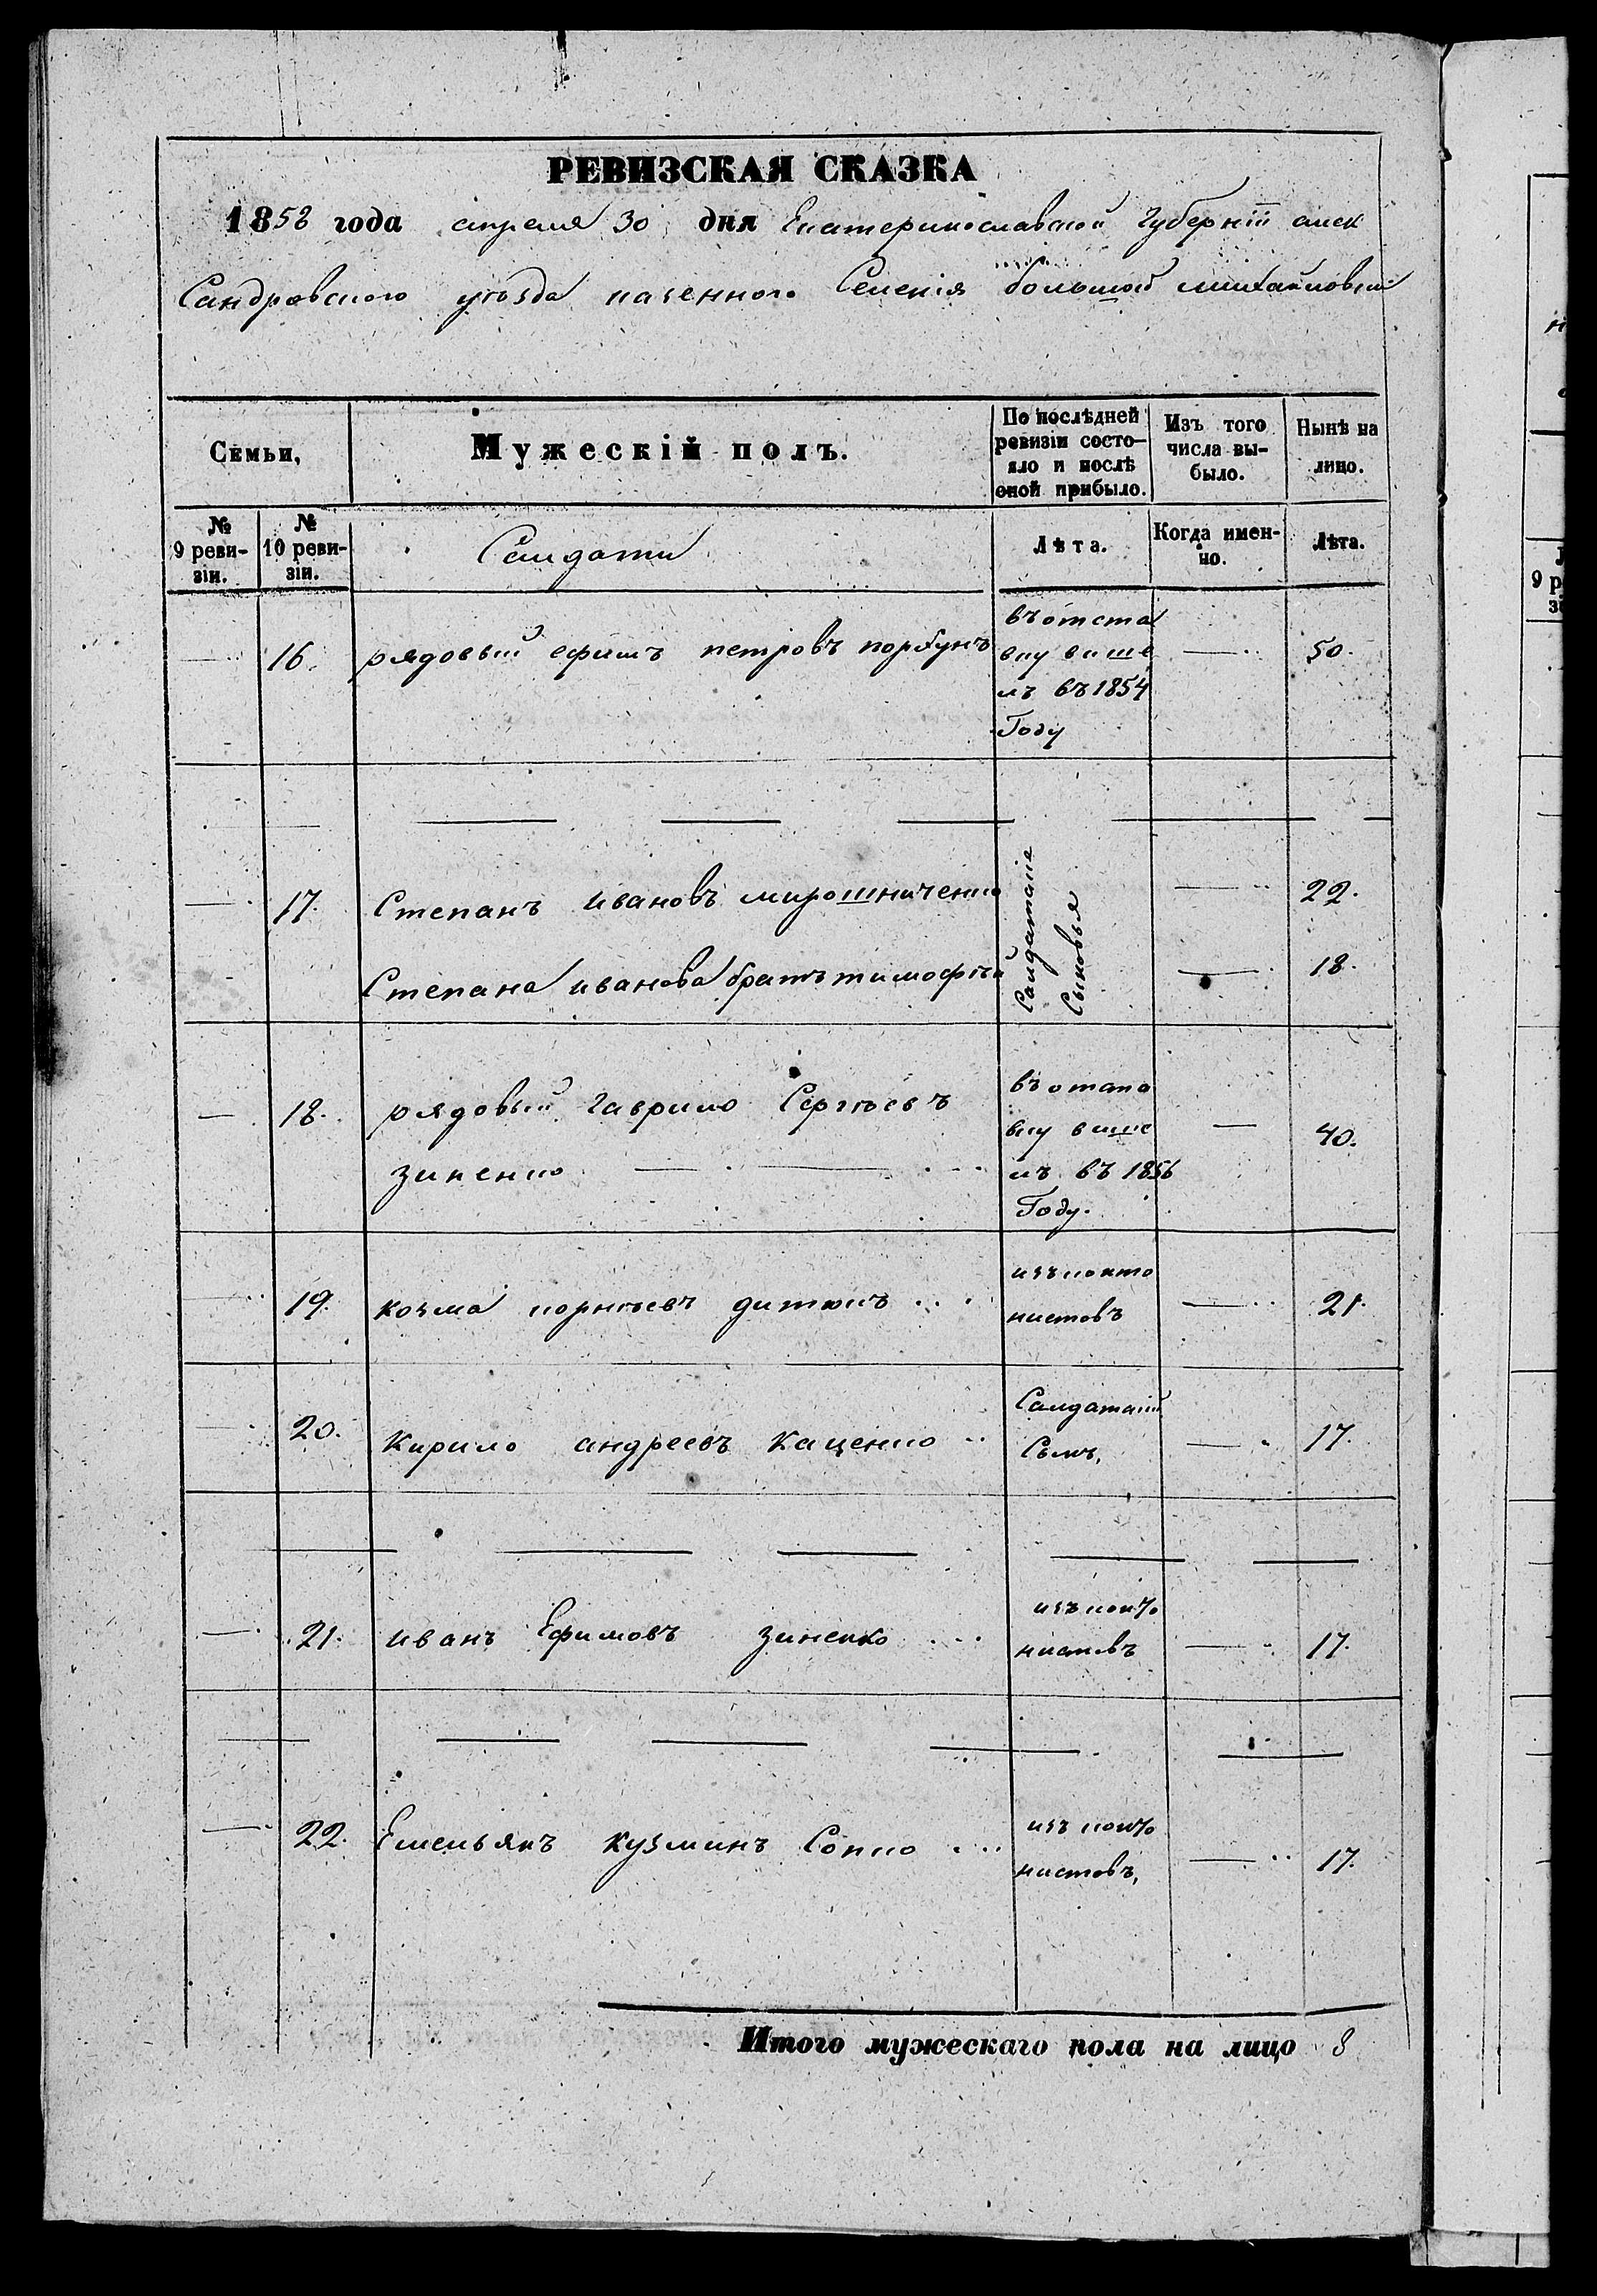 РЕВИЗСКАЯ СКАЗКА
1858 года апреля 30 дня Екатеринославской Губерніи алек
Сандровского уѣзда казенного Селенія большой михайловки
Семьи,
Мужескій полъ.
По послѣдней ревизіи состо-
яло и послѣ оной прибыло.
Изъ того числа вы-
было.
Нынѣ на лицо.
№ 9 реви-
зіи.
№ 10 реви-
зіи.
Салдаты
Лѣта.
Когда имен-
но.
Лѣта.
— 16. рядовый ефимъ петровъ
въ отста
вку выше
лъ въ 1854
Году
— 50.
— 17. Степанъ ивановъ мирошниченко
Салдатскіе
Сыновья
— 22.
Степана иванова братъ тимофѣй — 18.
— 18. рядовый гаврило Сергѣевъ
зиненко
въ отста
вку выше
лъ въ 1856
Году.
— 40.
— 19. козма корнѣевъ
изъ канто
нистовъ
— 21.
20. Кирило андреевъ Каценко
Салдатскій
Сынъ,
— 17.
— 21. иванъ Ефимовъ зиненко
изъ канто
нистовъ
— 17.
— 22. Емельянъ кузминъ Сопко
изъ канто
нистовъ,
— 17.
Итого мужескаго пола на лицо 8
9 р